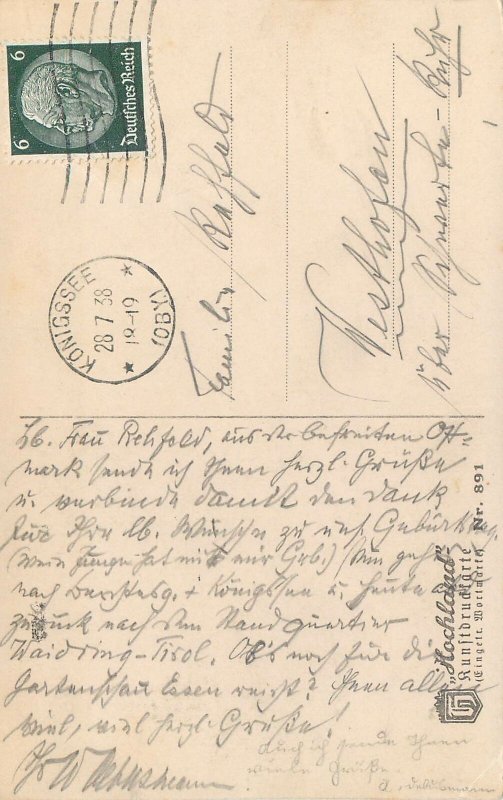 6 6
Deutsches Reich
KÖNIGSSEE
28 7 38
18-19
(OBY.)
Familie Rehfeld
Westhofen
über Schwerte-Ruhr
Lb. Frau Rehfeld, aus der befreiten Ost-
mark sende ich Ihnen herzl. Grüße
u. verbinde damit den Dank
für Ihre lb. Wünsche zu uns. Geburtstag.
Mein Junge hat mit mir Geb.) Nun geht
nach Berchtesg. + Königssee u. heute
zurück nach dem Standquartier
Waidring-Tirol. Ob's noch für die
Gartenschau Essen reicht? Ihnen allen
viel, viel herzl. Grüße!
Ihr W
Auch ich sende Ihnen
viele Grüße.
"Hochland"
Kunstdruckkarte
(Eingetr. Wortmarke) Nr. 891